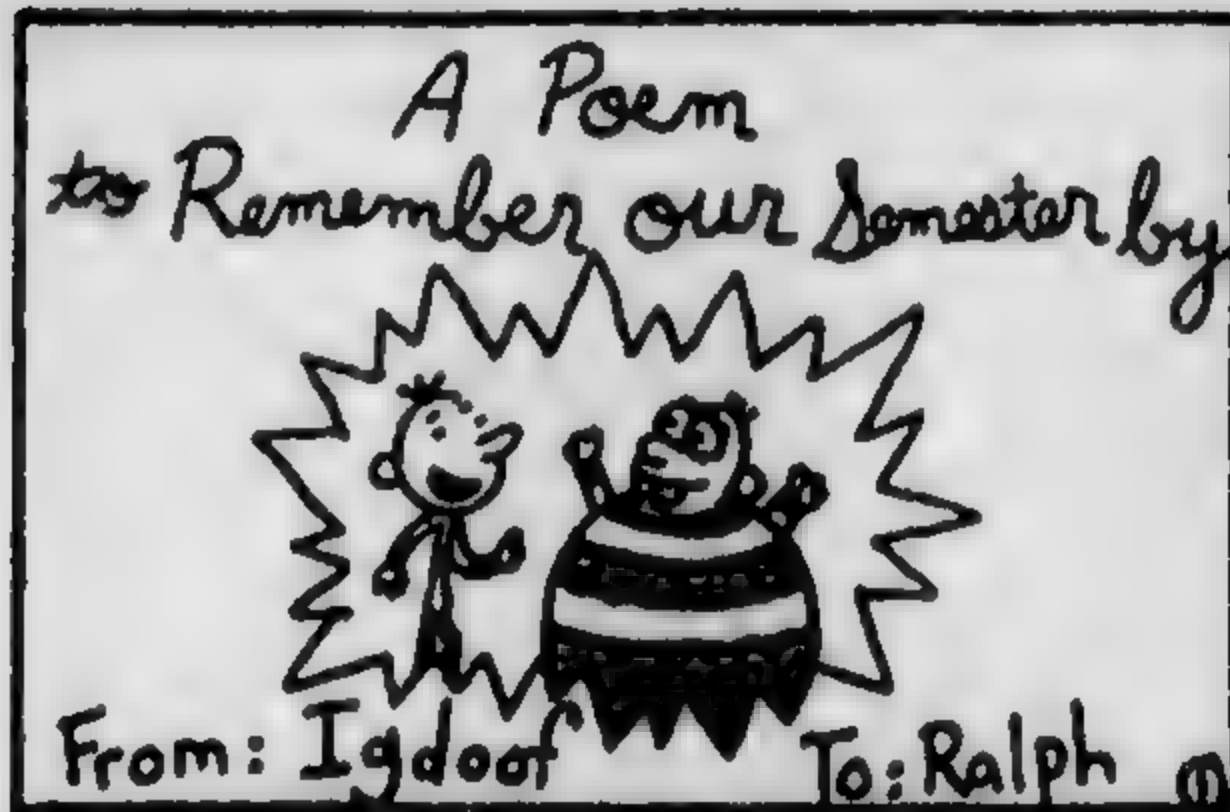 A Poem
to Remember our Semester by
From: Igdoof To: Ralph